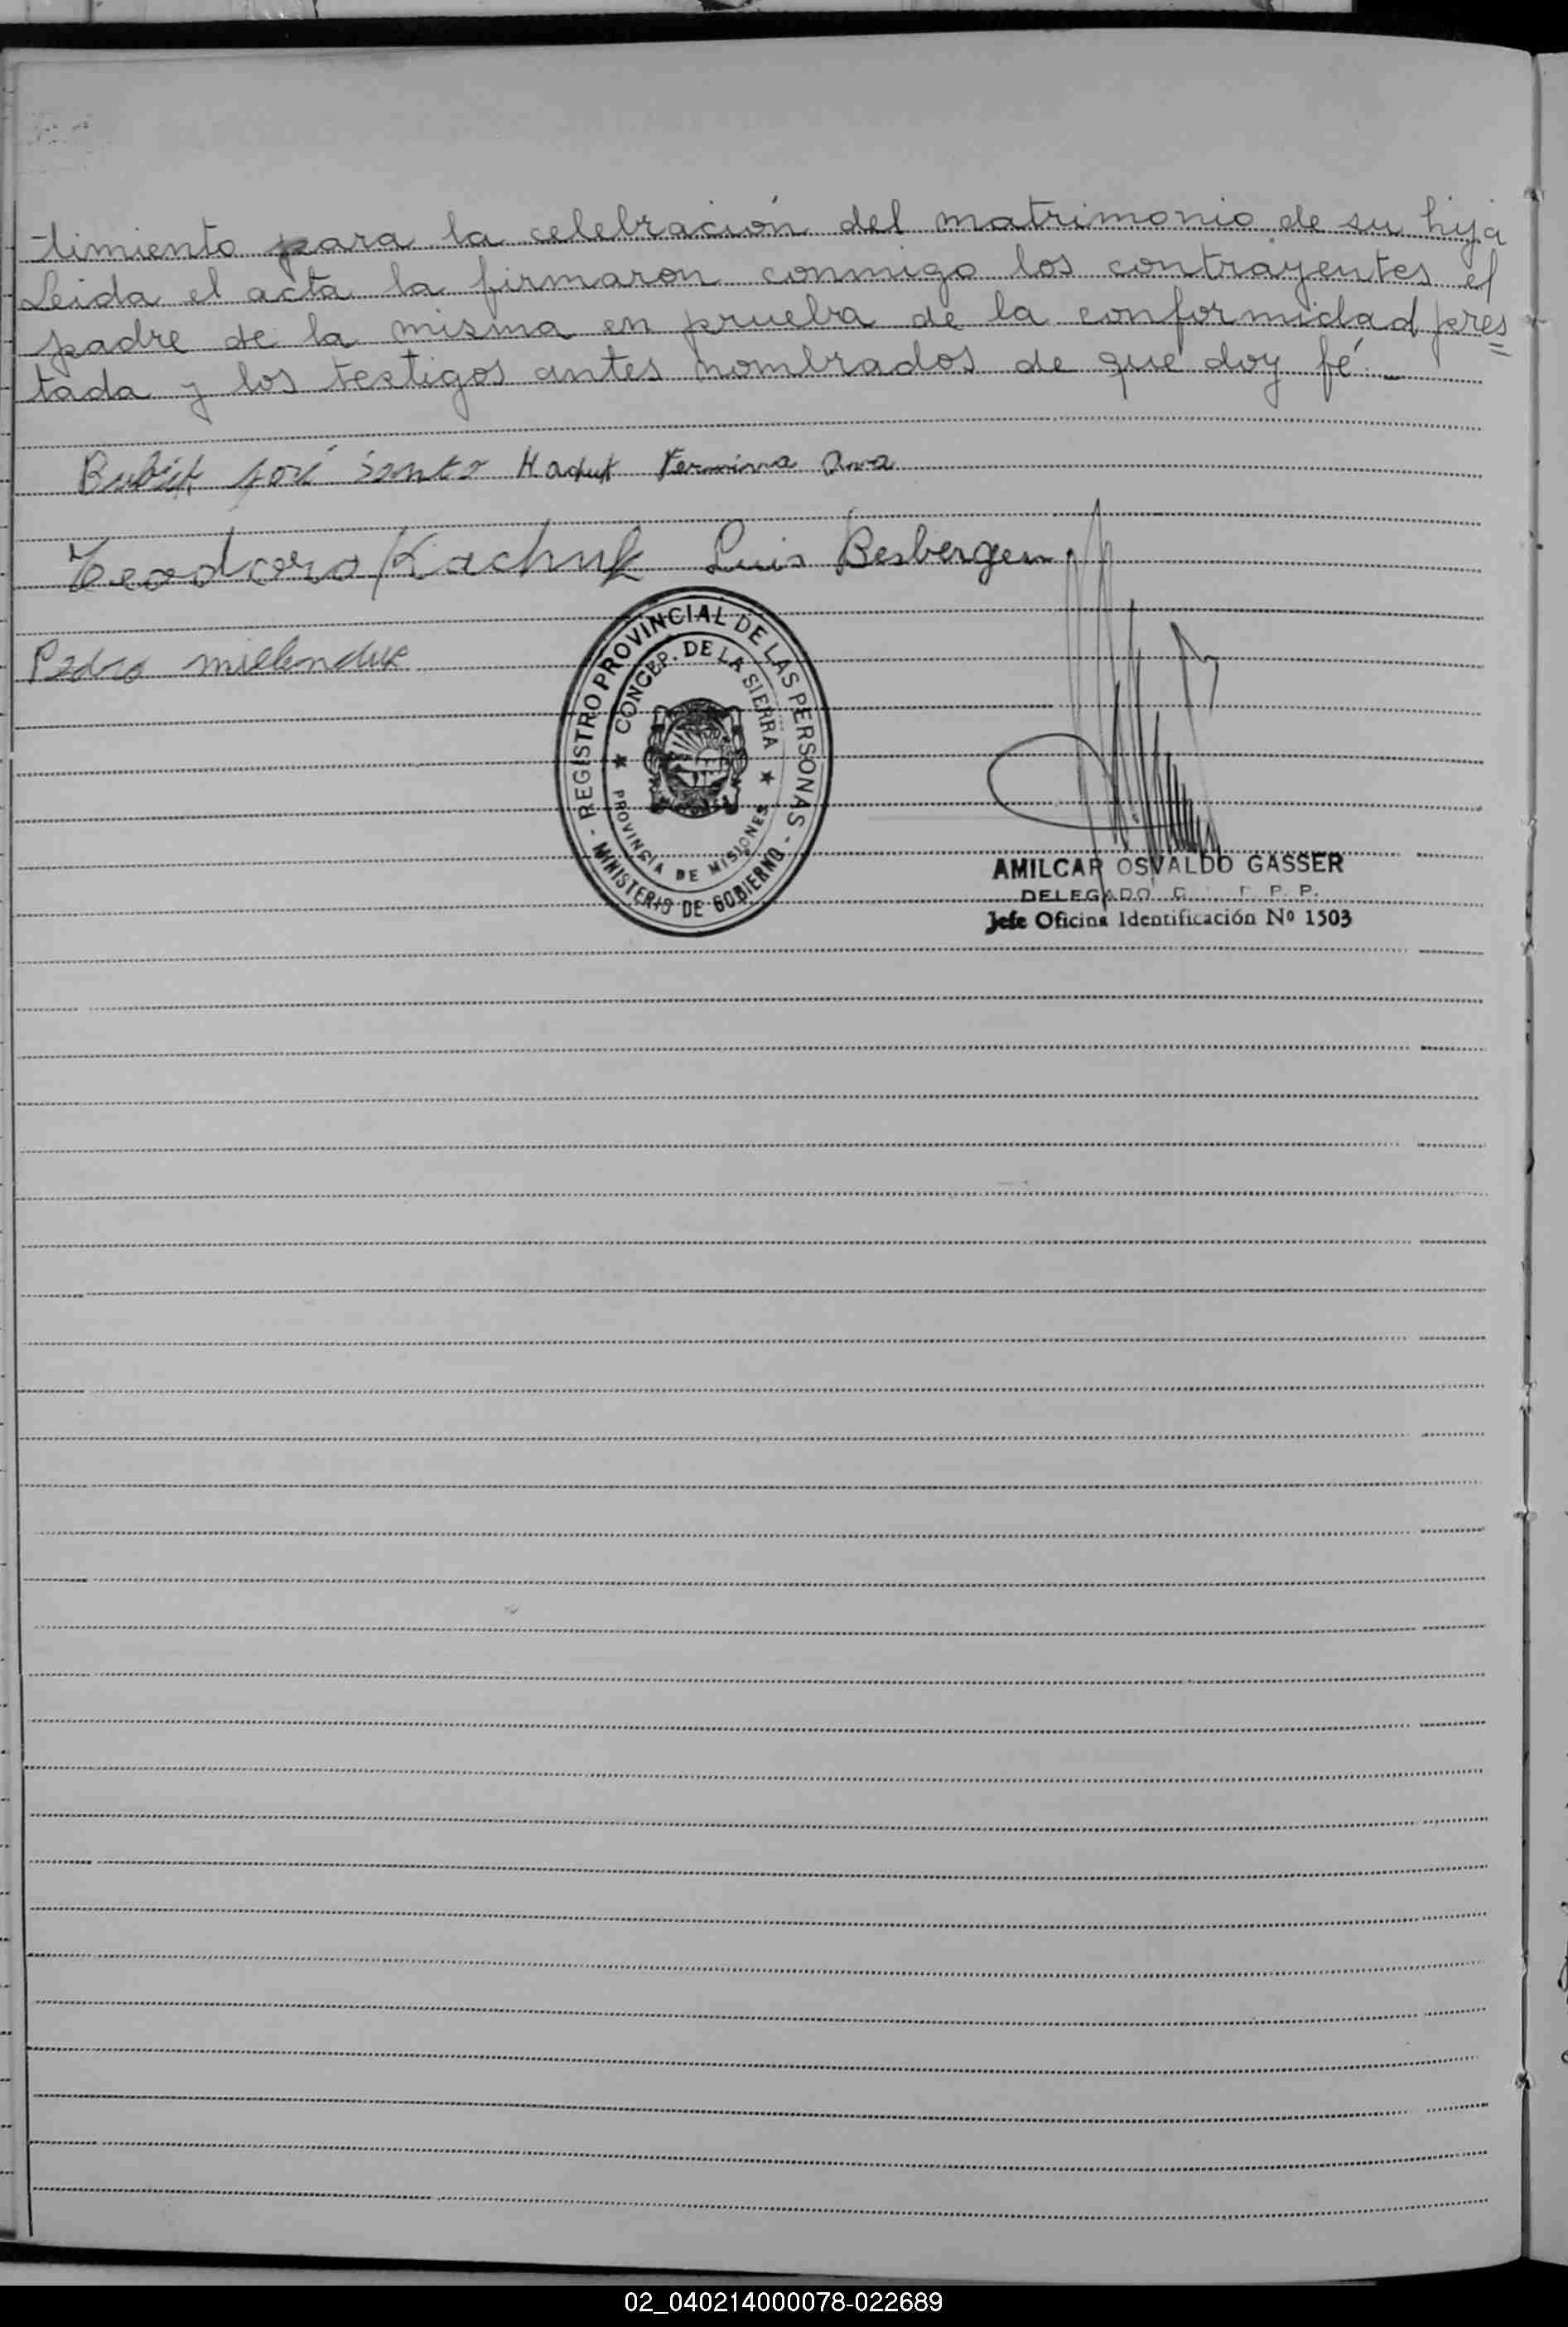 timiento para la celebración del matrimonio de su hija
Leida el acta la firmaron conmigo los contrayentes el
padre de la misma en prueba de la conformidad pres=
tada y los testigos antes nombrados de que doy fé. _
José Hadut Fermina Ana
Teodoro Kachuk Luis Besbergen
Pedro
- REGISTRO PROVINCIAL DE LAS PERSONAS -
MINISTERIO DE GOBIERNO
★ CONCEP. DE LA SIERRA ★
PROVINCIA DE MISIONES
AMILCAR OSVALDO GASSER
DELEGADO C. P. P.
Jefe Oficina Identificación Nº 1503
02_040214000078-022689